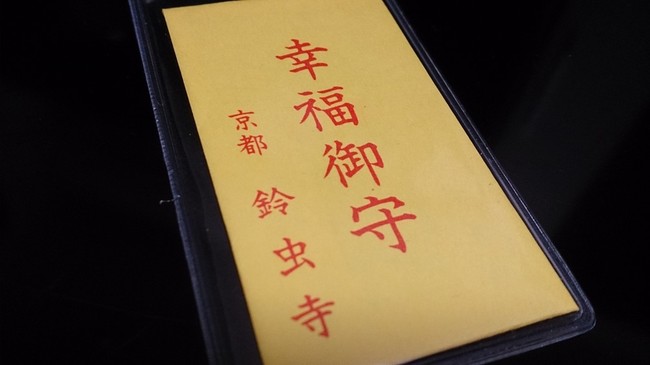 幸福御守
京都
鈴虫寺